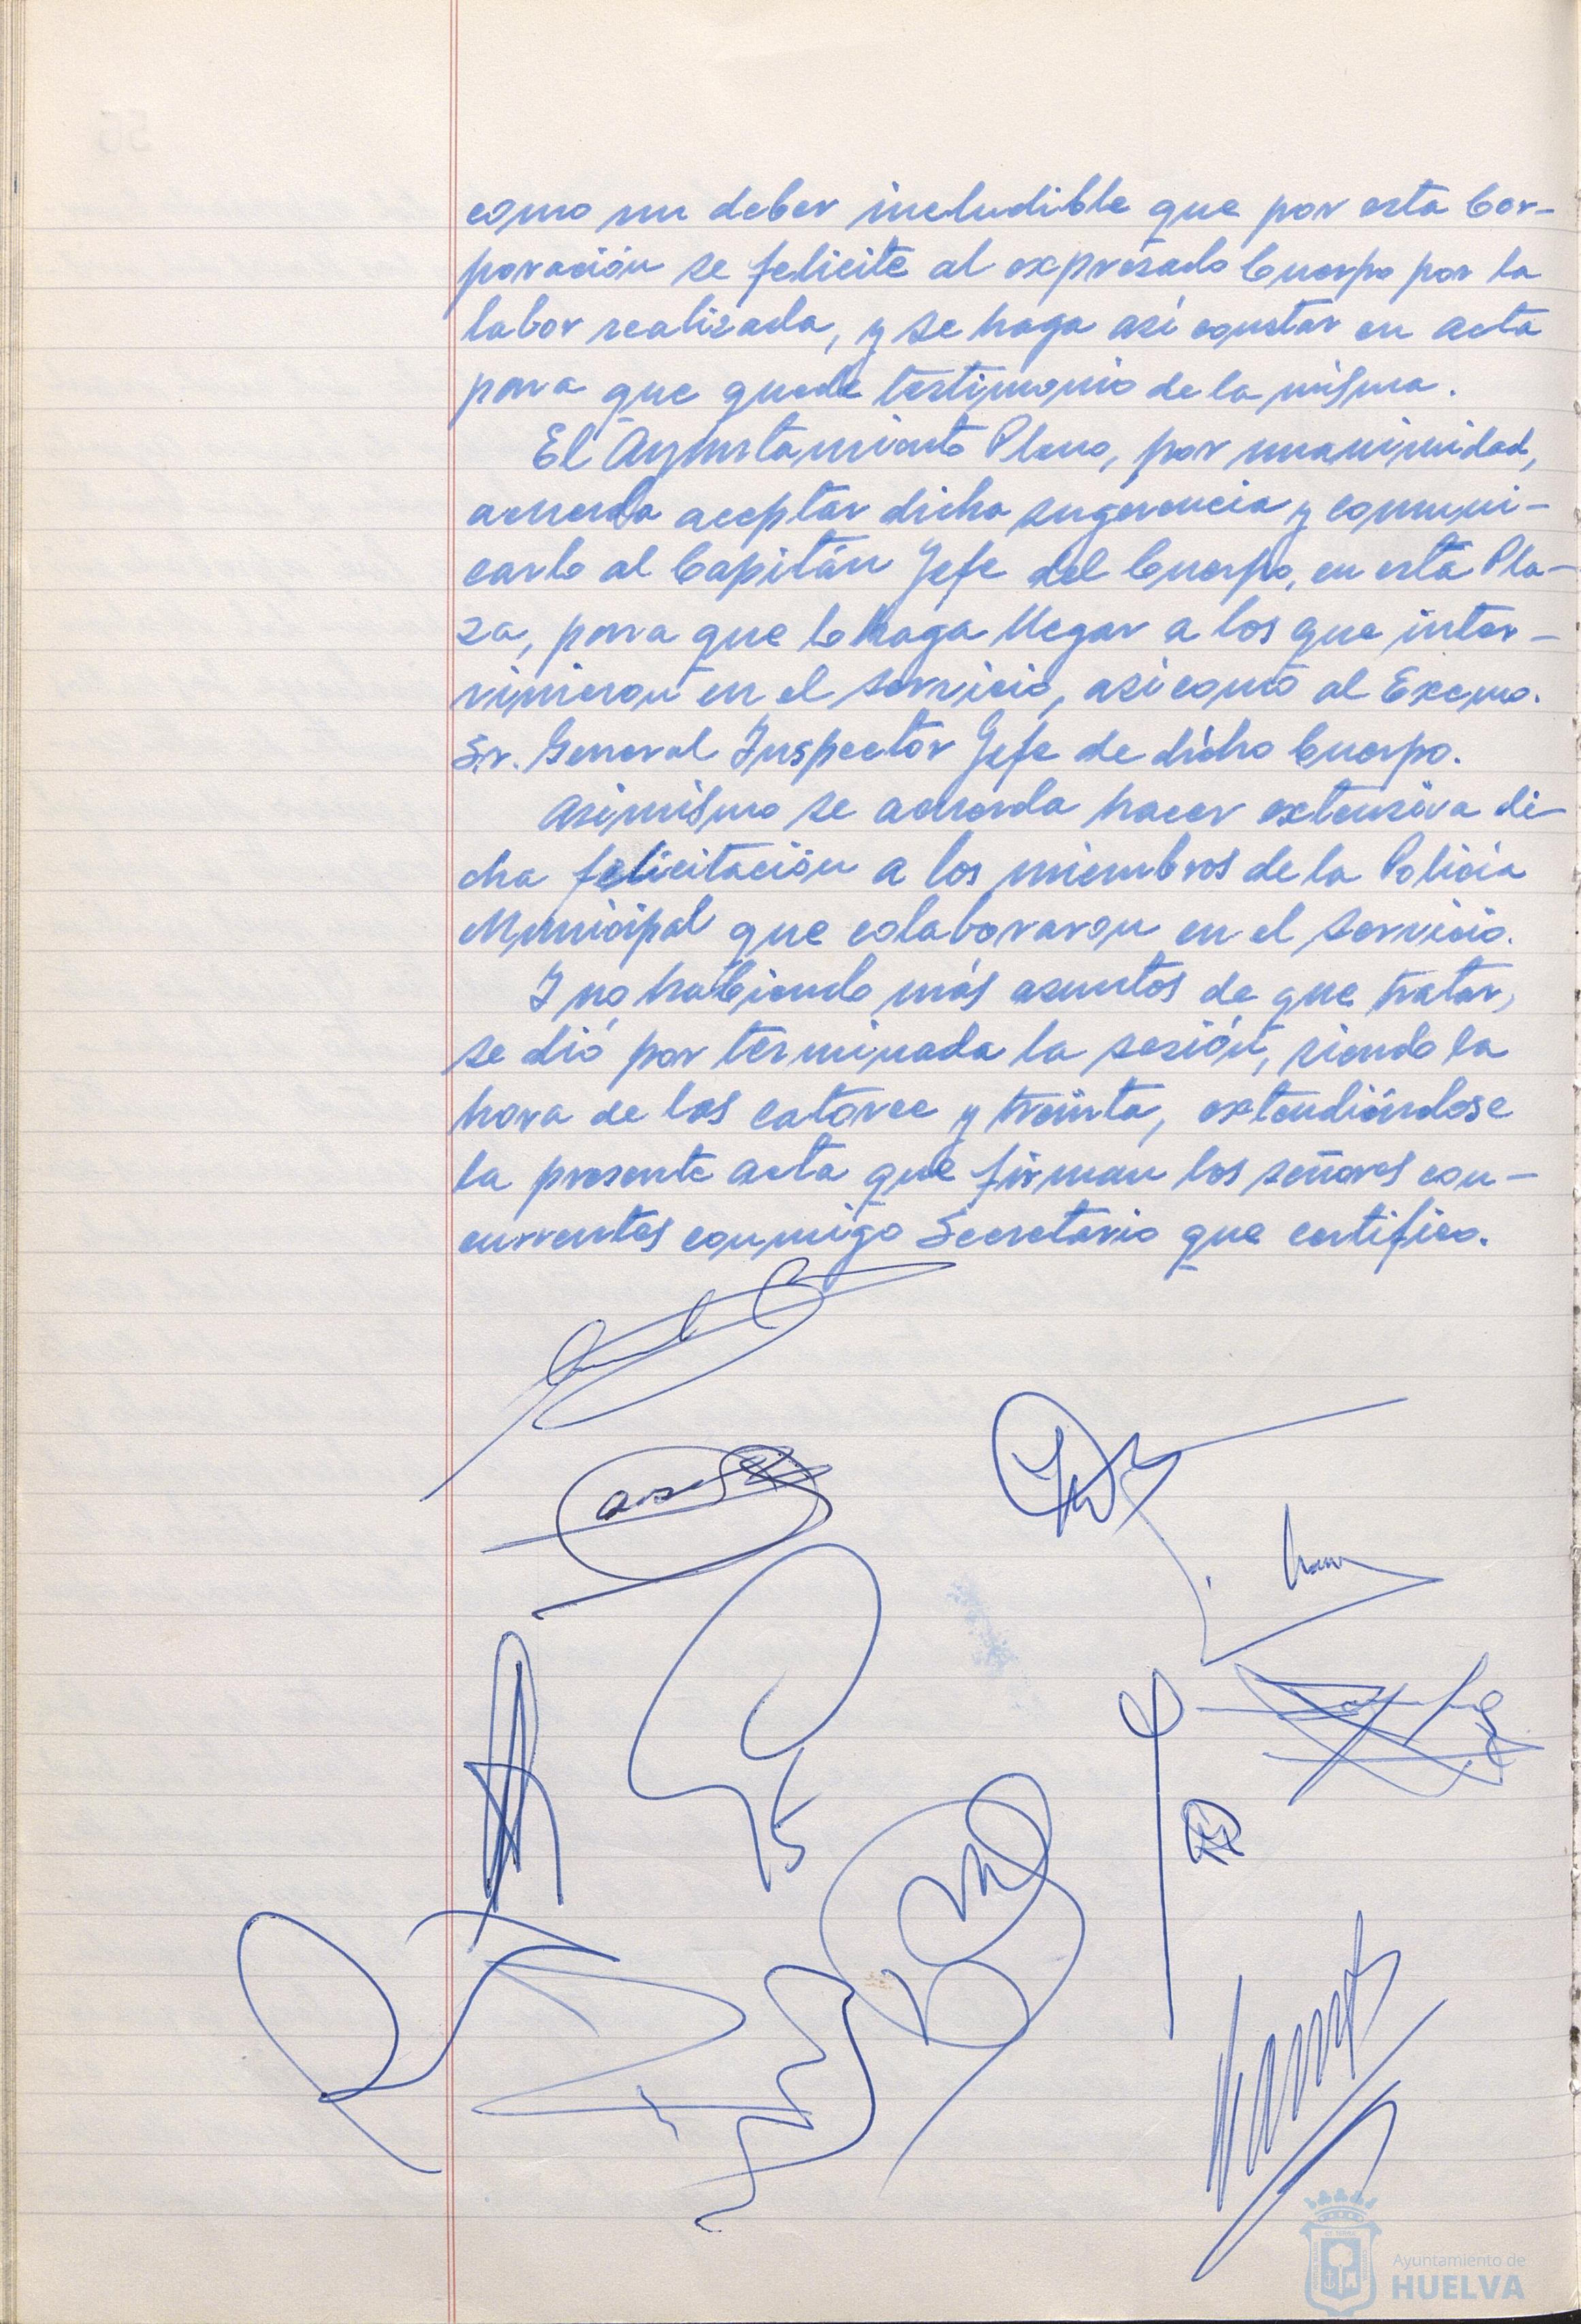 como un deber ineludible que por esta Cor-
poración se felicite al expresado Cuerpo por la
labor realizada, y se haga así constar en acta
para que quede testimonio de la misma.
El Ayuntamiento Pleno, por unanimidad,
acuerda aceptar dicha sugerencia y comuni-
carlo al Capitán Jefe del Cuerpo, en esta Pla-
za, para que lo haga llegar a los que inter-
vinieron en el servicio, así como al Excmo.
Sr. General Inspector Jefe de dicho Cuerpo.
Asimismo se acuerda hacer extensiva di-
cha felicitación a los miembros de la Policia
Municipal que colaboraron en el servicio.
Y no habiendo más asuntos de que tratar,
se dió por terminada la sesión, siendo la
hora de las catorce y treinta, extendiéndose
la presente acta que firman los señores con-
currentes conmigo Secretario que certifico.
Ayuntamiento de
HUELVA